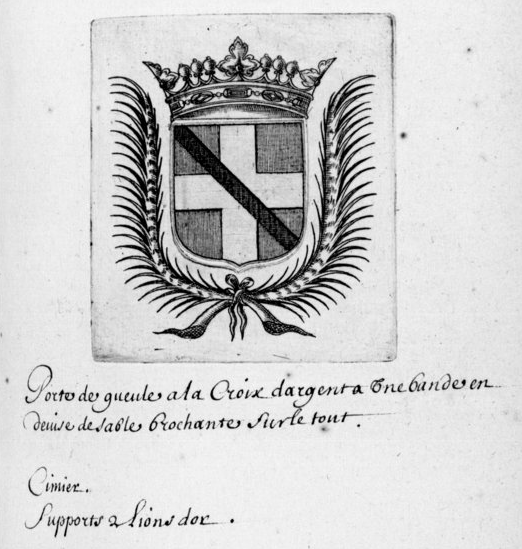 Porte de gueule a la Croix dargent a Vne bande en
deuise de sable brochante sur le tout.
Cimier.
Supports 2 Lions dor.